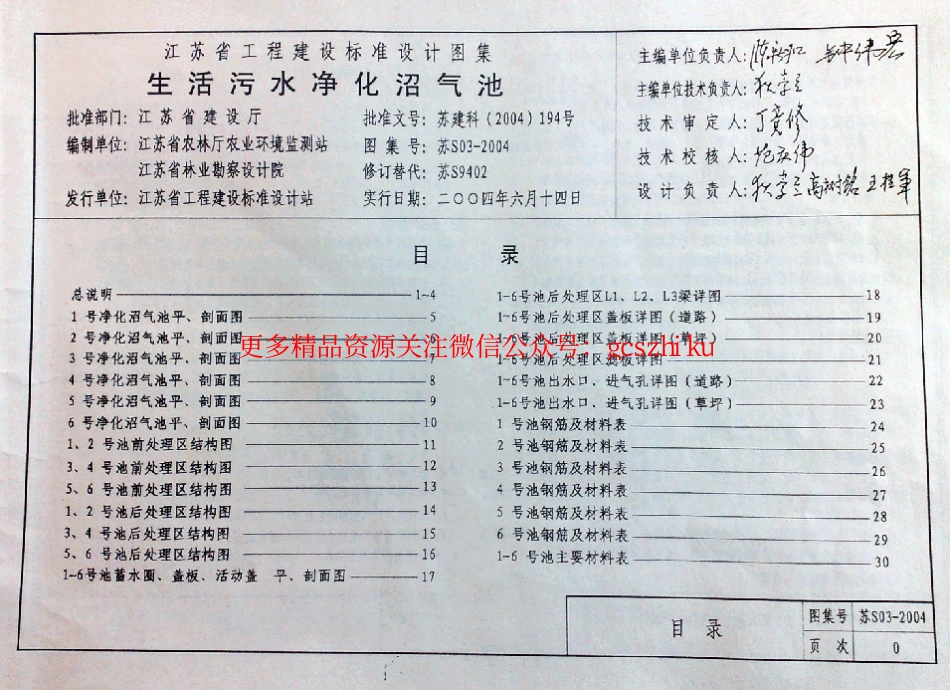 江苏省工程建设标准设计图集
生活污水净化沼气池
批准部门：江苏省建设厅
批准文号：苏建科（2004）194号
编制单位：江苏省农林厅农业环境监测站
图集号：苏S03-2004
江苏省林业勘察设计院
修订替代：苏S9402
发行单位：江苏省工程建设标准设计站
实行日期：二〇〇四年六月十四日
主编单位负责人：
主编单位技术负责人：狄崇兰
技术审定人：丁竞修
技术校核人：
设计负责人：狄崇兰 高树铭 王桂军
目 录
总说明 1-4
1 号净化沼气池平、剖面图 5
2 号净化沼气池平、剖面图 6
3 号净化沼气池平、剖面图 7
4 号净化沼气池平、剖面图 8
5 号净化沼气池平、剖面图 9
6 号净化沼气池平、剖面图 10
1、2 号池前处理区结构图 11
3、4 号池前处理区结构图 12
5、6 号池前处理区结构图 13
1、2 号池后处理区结构图 14
3、4 号池后处理区结构图 15
5、6 号池后处理区结构图 16
1-6号池蓄水圈、盖板、活动盖 平、剖面图 17
1-6号池后处理区L1、L2、L3梁详图 18
1-6号池后处理区盖板详图（道路） 19
1-6号池后处理区盖板详图（草坪） 20
1-6号池后处理区滤板详图 21
1-6号池出水口、进气孔详图（道路） 22
1-6号池出水口、进气孔详图（草坪） 23
1 号池钢筋及材料表 24
2 号池钢筋及材料表 25
3 号池钢筋及材料表 26
4 号池钢筋及材料表 27
5 号池钢筋及材料表 28
6 号池钢筋及材料表 29
1-6 号池主要材料表 30
更多精品资源关注微信公众号：gcszhiku
目 录
图集号 苏S03-2004
页 次 0